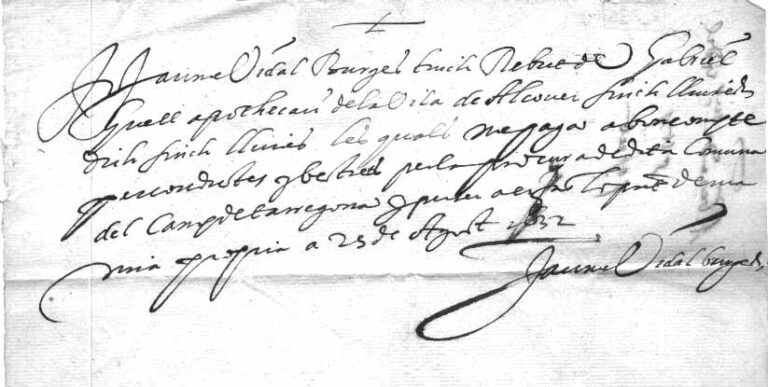 Jo Jaume Vidal Burges tinch Rebut de Gabriel
apothecari de la Vila de Alcover sinch lliures
dich sinch lliures les quals me paga a bon compte
per conductes y besties per la procura de dita Comuna
del Camp de tarragona y per ser axi fas lo pnt de ma
mia propria a 25 de Agost 1632
Jaume Vidal burges